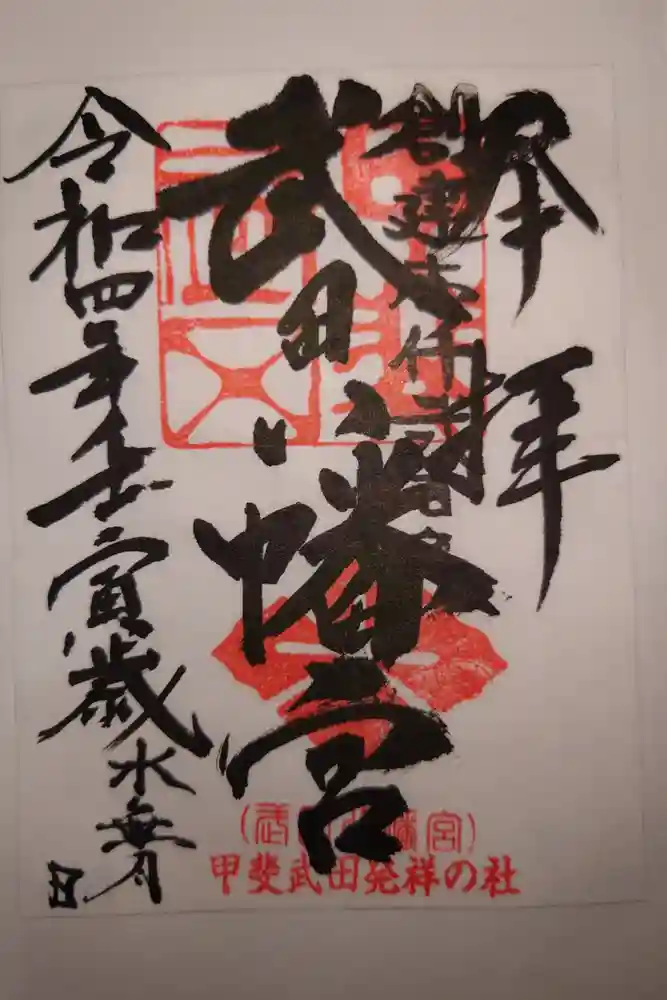 奉拝
武田八幡宮
令和四年壬寅歳
水無月
日
(武田八幡宮)
甲斐武田発祥の社